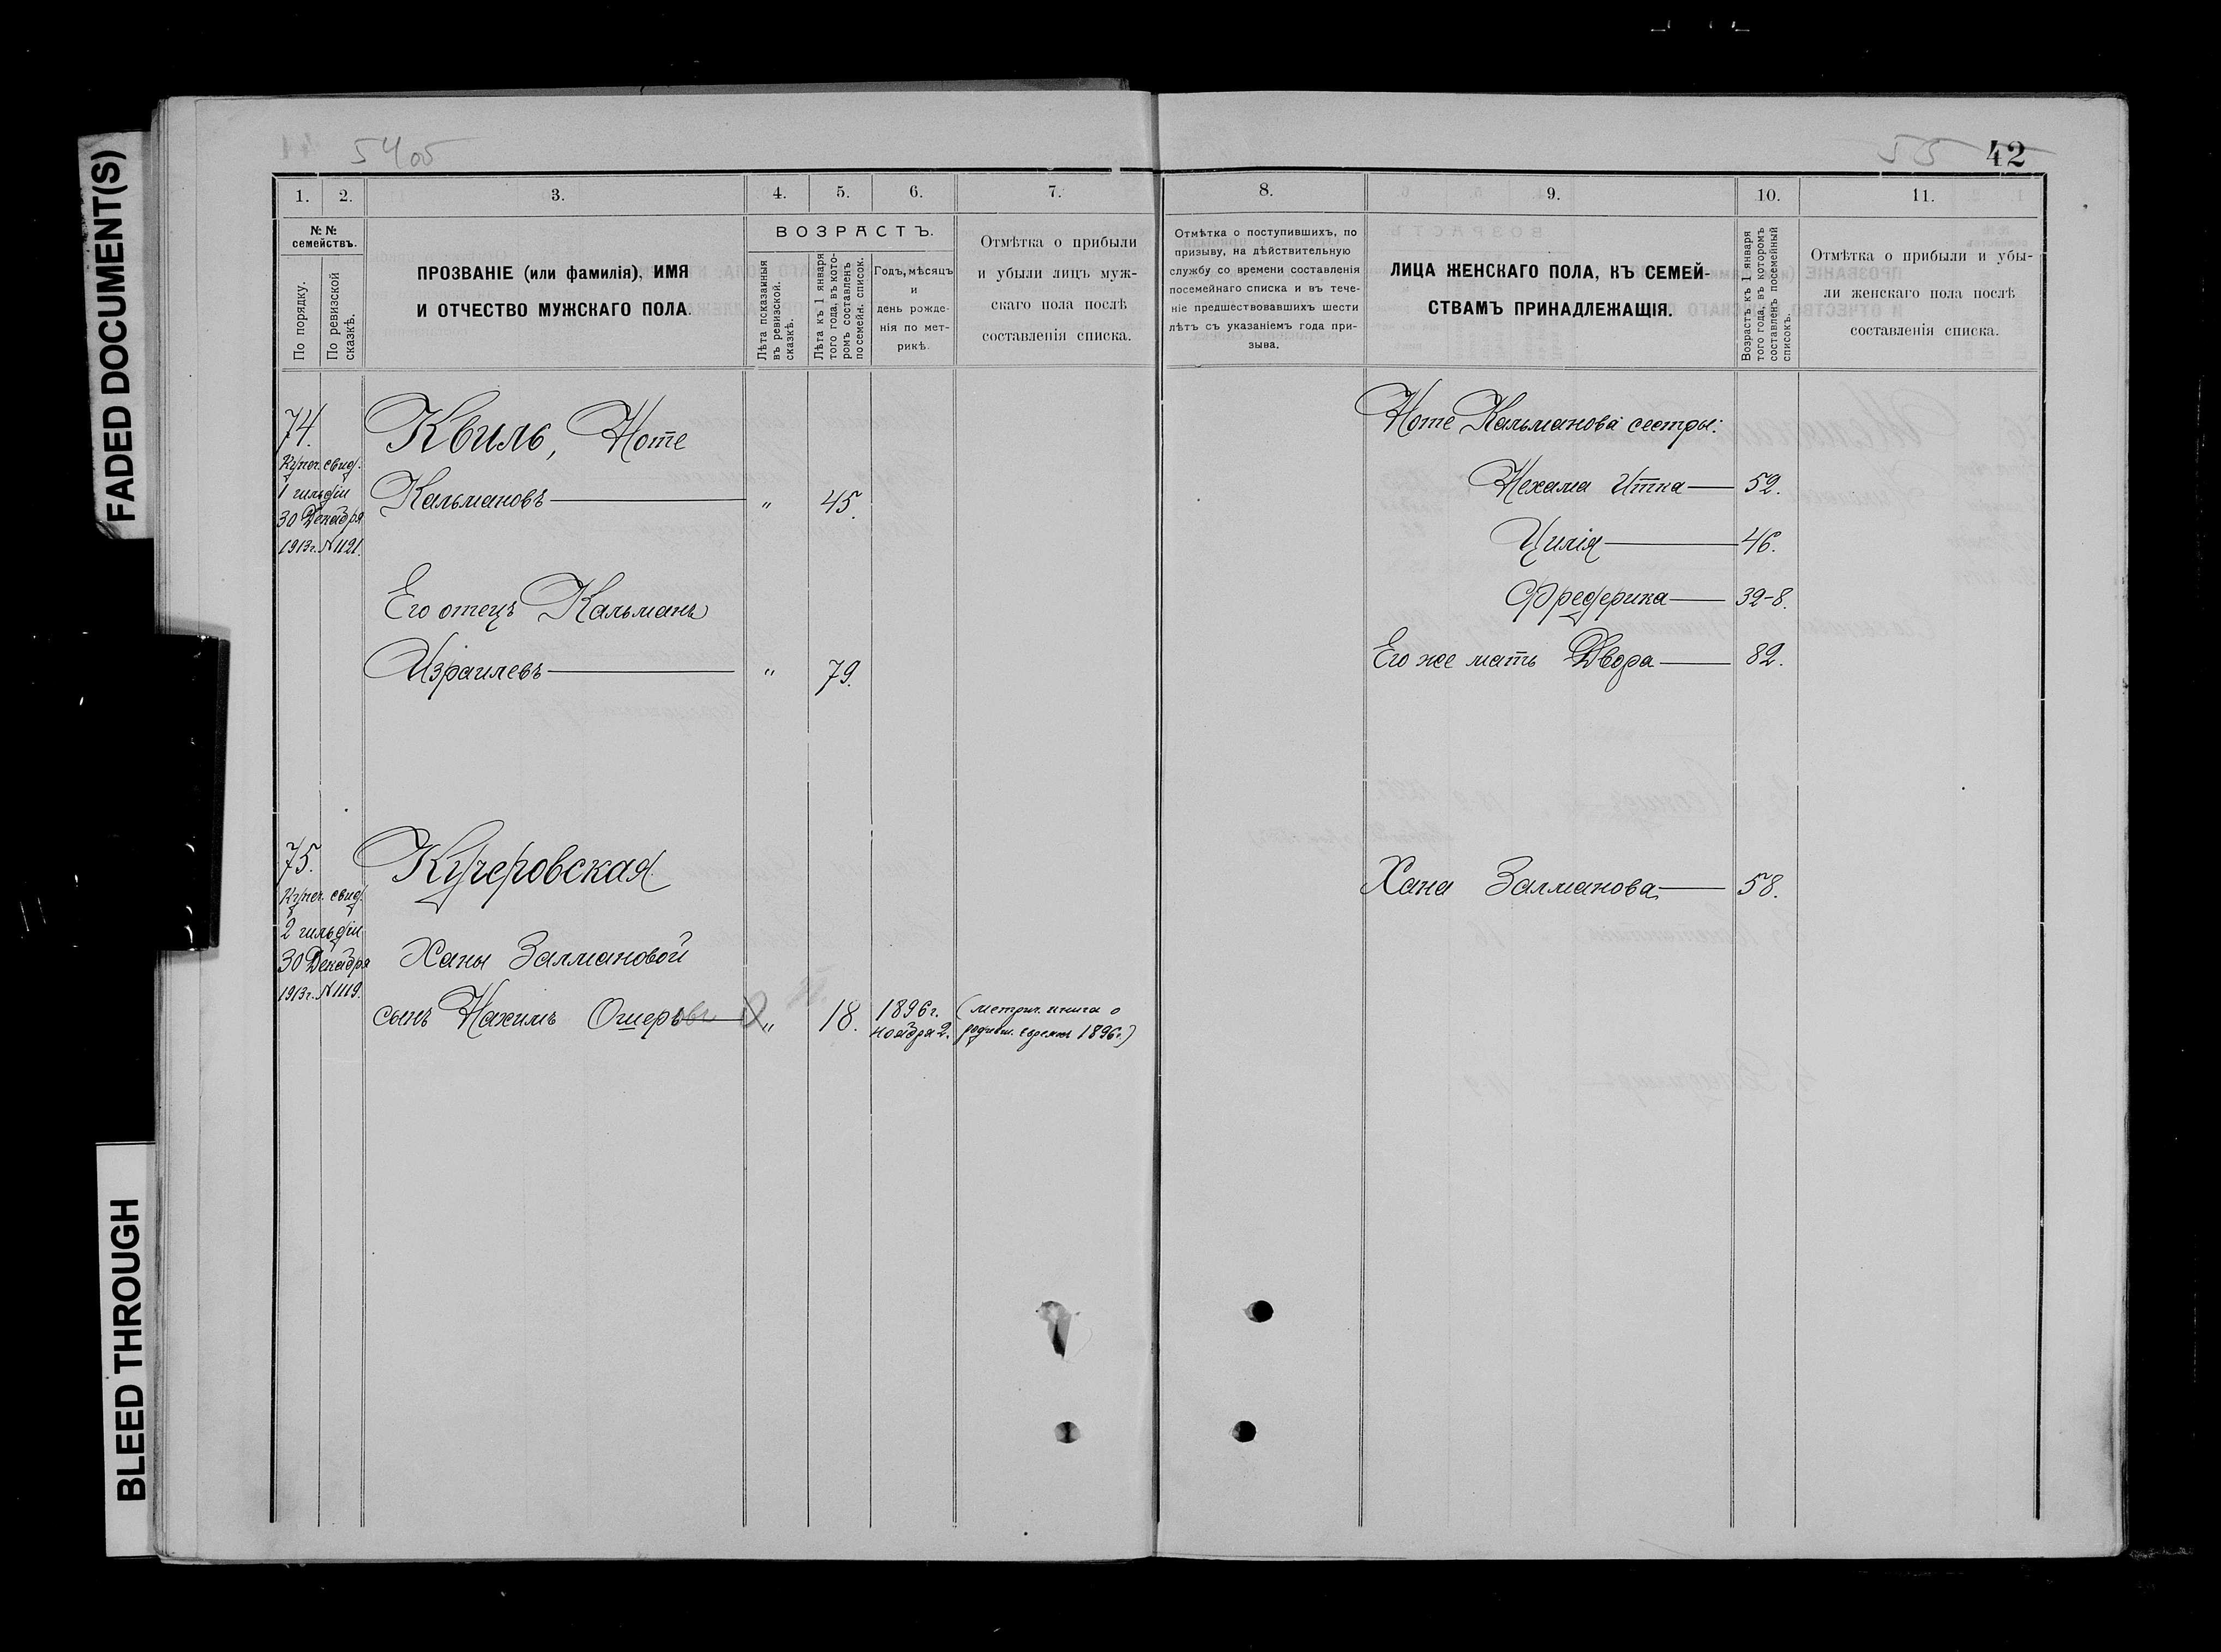 FADED DOCUMENT(S)
BLEED THROUGH
5405
55
42
1. 2. 3. 4. 5. 6. 7.
№ №
семействъ.
По порядку.
По ревизской
сказкѣ.
ПРОЗВАНІЕ (или фамилія), ИМЯ
И ОТЧЕСТВО МУЖСКАГО ПОЛА.
ВОЗРАСТЪ.
Лѣта показанныя
въ ревизской.
сказкѣ.
Лѣта къ 1 января
того года, въ кото-
ромъ составленъ
посемейн. список.
Годъ, мѣсяцъ
и
день рожде-
нія по мет-
рикѣ.
Отмѣтка о прибыли
и убыли лицъ муж-
скаго пола послѣ
составленія списка.
74.
Купеч. свид.
1 гильдіи
30 Декабря
1913г. № 1121.
Квиль, Ноте
Кальмановъ — " 45.
Его отецъ Кальманъ
Израилевъ — " 79.
75.
Купеч. свид.
2 гильдіи
30 Декабря
1913г. № 1119.
Кучеровская
Ханы Залмановой
сынъ Нахимъ Ошеръ — " 18. 1896г. (метрич. книга о
ноября 2. родивш. евреяхъ 1896г.)
8. 9. 10. 11.
Отмѣтка о поступившихъ, по
призыву, на дѣйствительную
службу со времени составленія
посемейнаго списка и въ тече-
ніе предшествовавшихъ шести
лѣтъ съ указаніемъ года при-
зыва.
ЛИЦА ЖЕНСКАГО ПОЛА, КЪ СЕМЕЙ-
СТВАМЪ ПРИНАДЛЕЖАЩІЯ.
Возрастъ къ 1 января
того года, въ которомъ
составленъ посемейный
списокъ.
Отмѣтка о прибыли и убы-
ли женскаго пола послѣ
составленія списка.
Ноте Кальманова сестры:
Нехама Итка — 52.
Цилія — 46.
Фредерика — 32-8.
Его же мать Двора — 82.
Хана Залманова — 58.